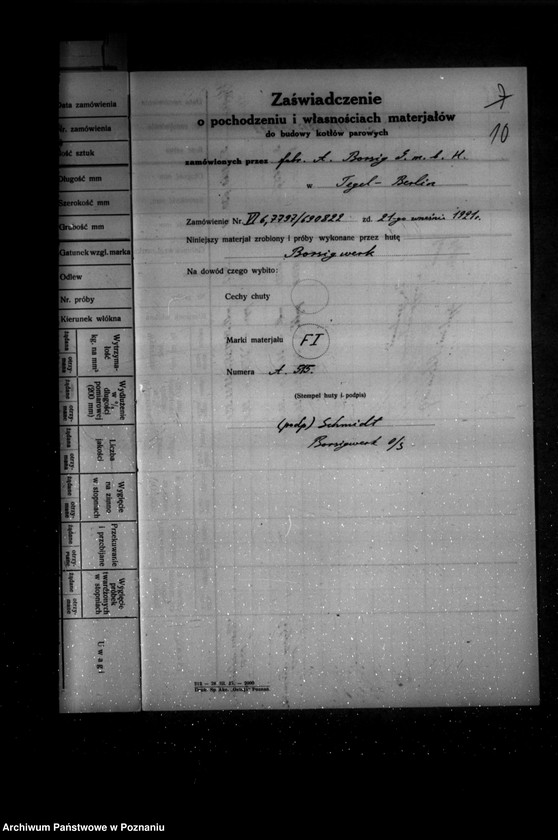 Data zamówienia
Nr. zamówienia
Ilość sztuk
Długość mm
Szerokość mm
Grubość mm
Gatunek wzgl. marka
Odlew
Nr. próby
Kierunek włókna
Wytrzymałość kg. na mm²
żądana
otrzymana
Wydłużenie w % długości pomiarowej (200 mm)
żądane
otrzymane
Liczba jakości
żądana
otrzymana
Wygięcie na zimno w stopniach
żądane
otrzymane
Przekuwanie i przebijanie
żądane
otrzymane
Wygięcie próbek twardzonych w stopniach
żądane
otrzymane
Uwagi
7
10
Zaświadczenie
o pochodzeniu i własnościach materjałów
do budowy kotłów parowych
zamówionych przez fabr. A. Borsig G.m.b.H.
w Tegel-Berlin
Zamówienie Nr. VI 6,7797/690822 zd. 21-go września 1921r.
Niniejszy materjał zrobiony i próby wykonane przez hutę
Borsigwerk
Na dowód czego wybito:
Cechy chuty
Marki materjału FI
Numera A. 515.
(Stempel huty i podpis)
(podp) Schmidt
Borsigwerk O/S
Druk. Sp. Akc. Poznań
Archiwum Państwowe w Poznaniu